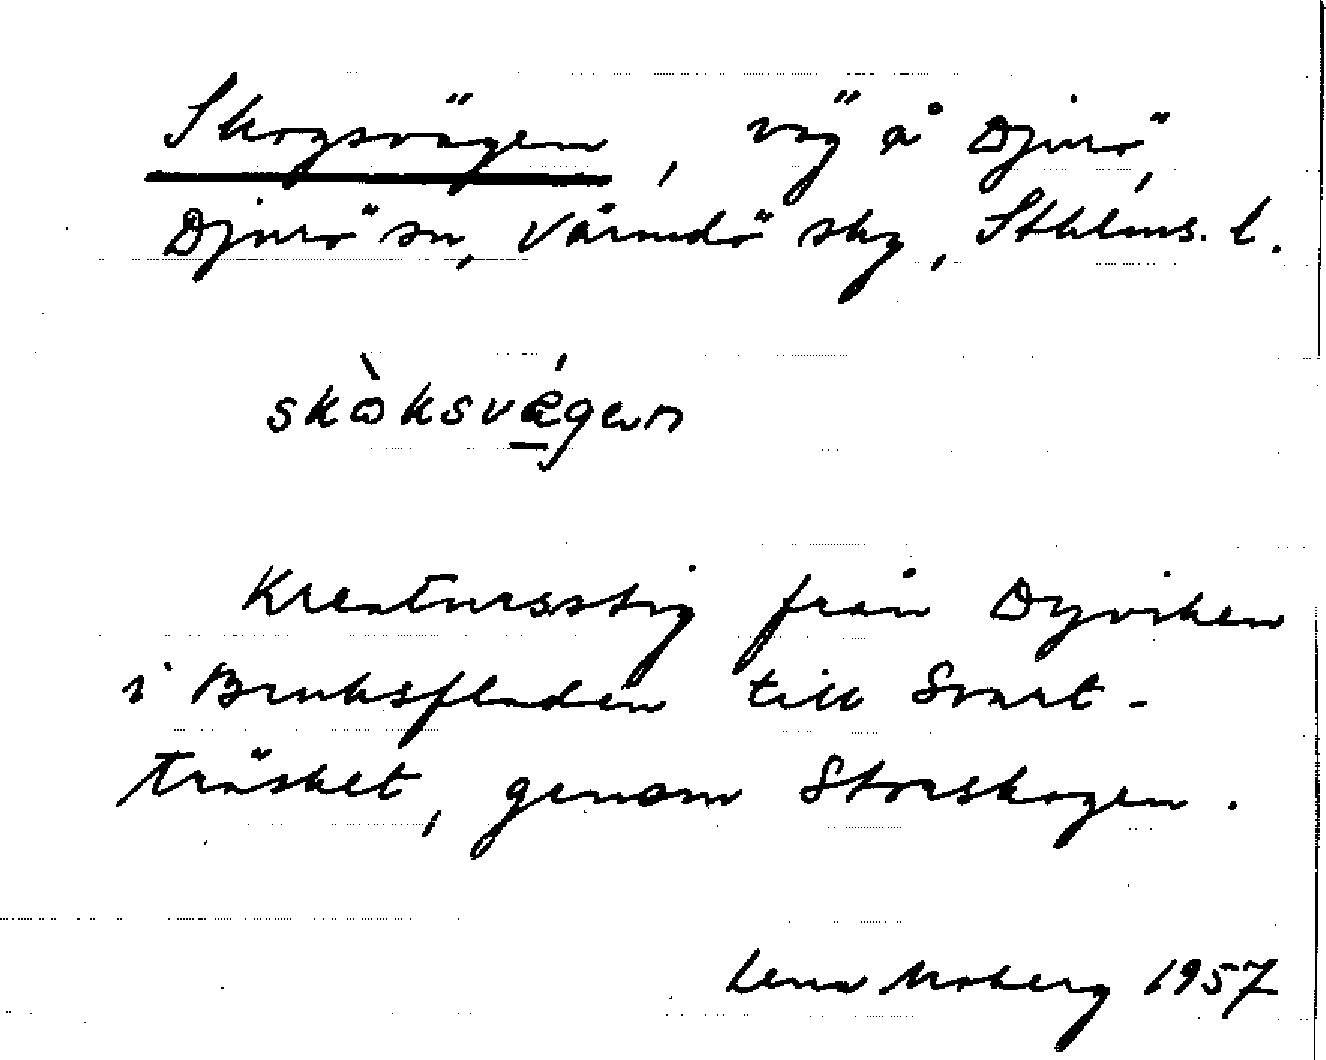 Skogsvägen, väg å Djurö,
Djurö sn, Värmdö skg, Sthlms. l.
skòksvǽgen
Kreatursstig från Dyviken
i Bruksfladen till Svart-
träsket, genom Storskogen.
Lena Moberg 1957